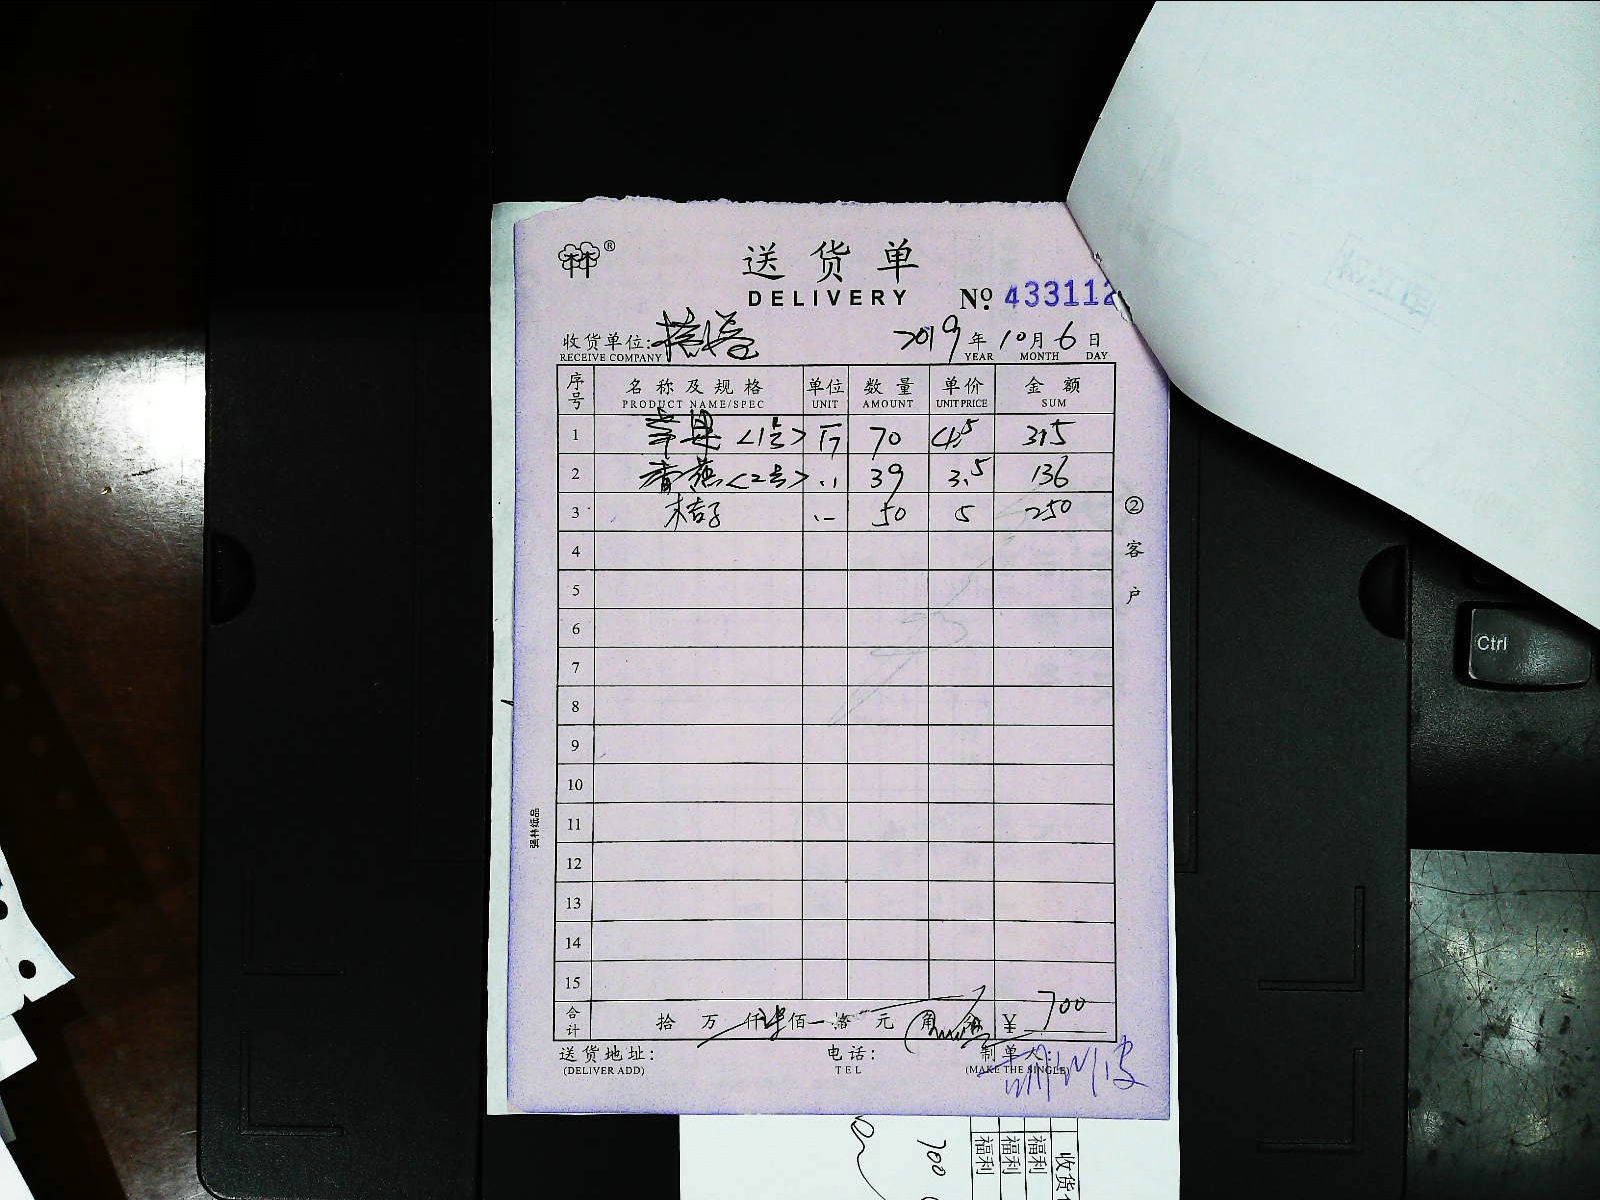 ®
送货单
DELIVERY
№ 433112
收货单位: 2019年10月6日
RECEIVE COMPANY YEAR MONTH DAY
序号 名称及规格 单位 数量 单价 金额
PRODUCT NAME/SPEC UNIT AMOUNT UNIT PRICE SUM
1 苹果<1号> 斤 70 4.5 315
2 香蕉<2号> 〃 39 3.5 136
3 桔子 〃 50 5 250
4
5
6
7
8
9
10
11
12
13
14
15
合计 拾 万 仟 佰 拾 元 角 分 ¥ 700
送货地址: 电话: 制单人:
(DELIVER ADD) TEL (MAKE THE SINGLE)
② 客户
强林纸品
Ctrl
700
福利
福利
福利
收货